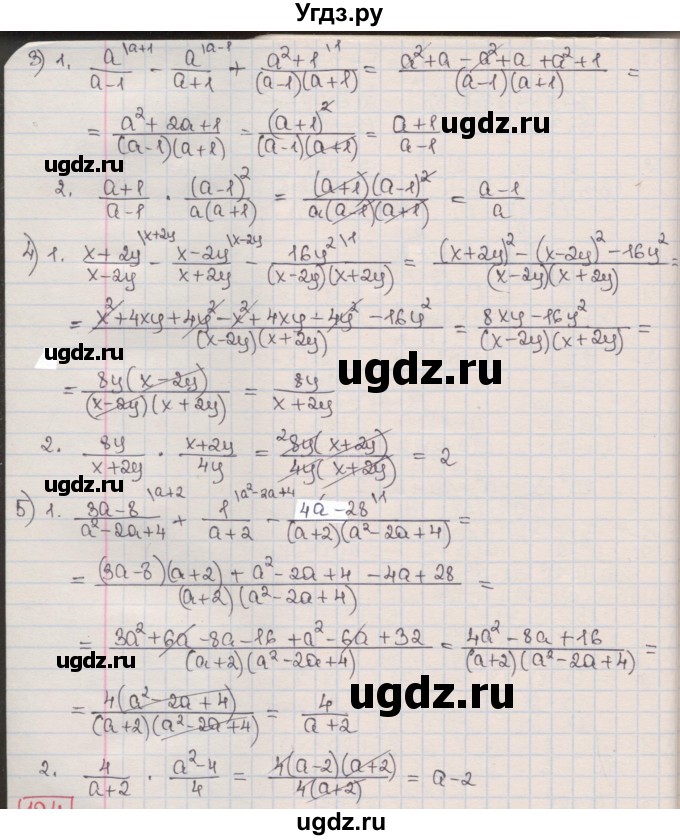 Угдз.ру
3) 1. a/(a-1) \a+1 - a/(a+1) \a-1 + (a²+1)/((a-1)(a+1)) \1 = (a²+a-a²+a+a²+1)/((a-1)(a+1)) =
ugdz.ru
= (a²+2a+1)/((a-1)(a+1)) = (a+1)²/((a-1)(a+1)) = (a+1)/(a-1)
ugdz.ru
ugdz.ru
2. (a+1)/(a-1) · (a-1)²/(a(a+1)) = ((a+1)(a-1)²)/(a(a-1)(a+1)) = (a-1)/a
4) 1. (x+2y)/(x-2y) \x+2y - (x-2y)/(x+2y) \x-2y - 16y²/((x-2y)(x+2y)) \1 = ((x+2y)²-(x-2y)²-16y²)/((x-2y)(x+2y)) =
= (x²+4xy+4y²-x²+4xy-4y²-16y²)/((x-2y)(x+2y)) = (8xy-16y²)/((x-2y)(x+2y)) =
ugdz.ru
= (8y(x-2y))/((x-2y)(x+2y)) = 8y/(x+2y)
ugdz.ru
2. 8y/(x+2y) · (x+2y)/4y = ²8y(x+2y)/(4y(x+2y)) = 2
5) 1. (3a-8)/(a²-2a+4) \a+2 + 1/(a+2) \a²-2a+4 - (4a-28)/((a+2)(a²-2a+4)) \1 =
= ((3a-8)(a+2)+a²-2a+4-4a+28)/((a+2)(a²-2a+4)) =
ugdz.ru
= (3a²+6a-8a-16+a²-6a+32)/((a+2)(a²-2a+4)) = (4a²-8a+16)/((a+2)(a²-2a+4)) =
ugdz.ru
ugdz.ru
= (4(a²-2a+4))/((a+2)(a²-2a+4)) = 4/(a+2)
2. 4/(a+2) · (a²-4)/4 = (4(a-2)(a+2))/(4(a+2)) = a-2
ugdz.ru